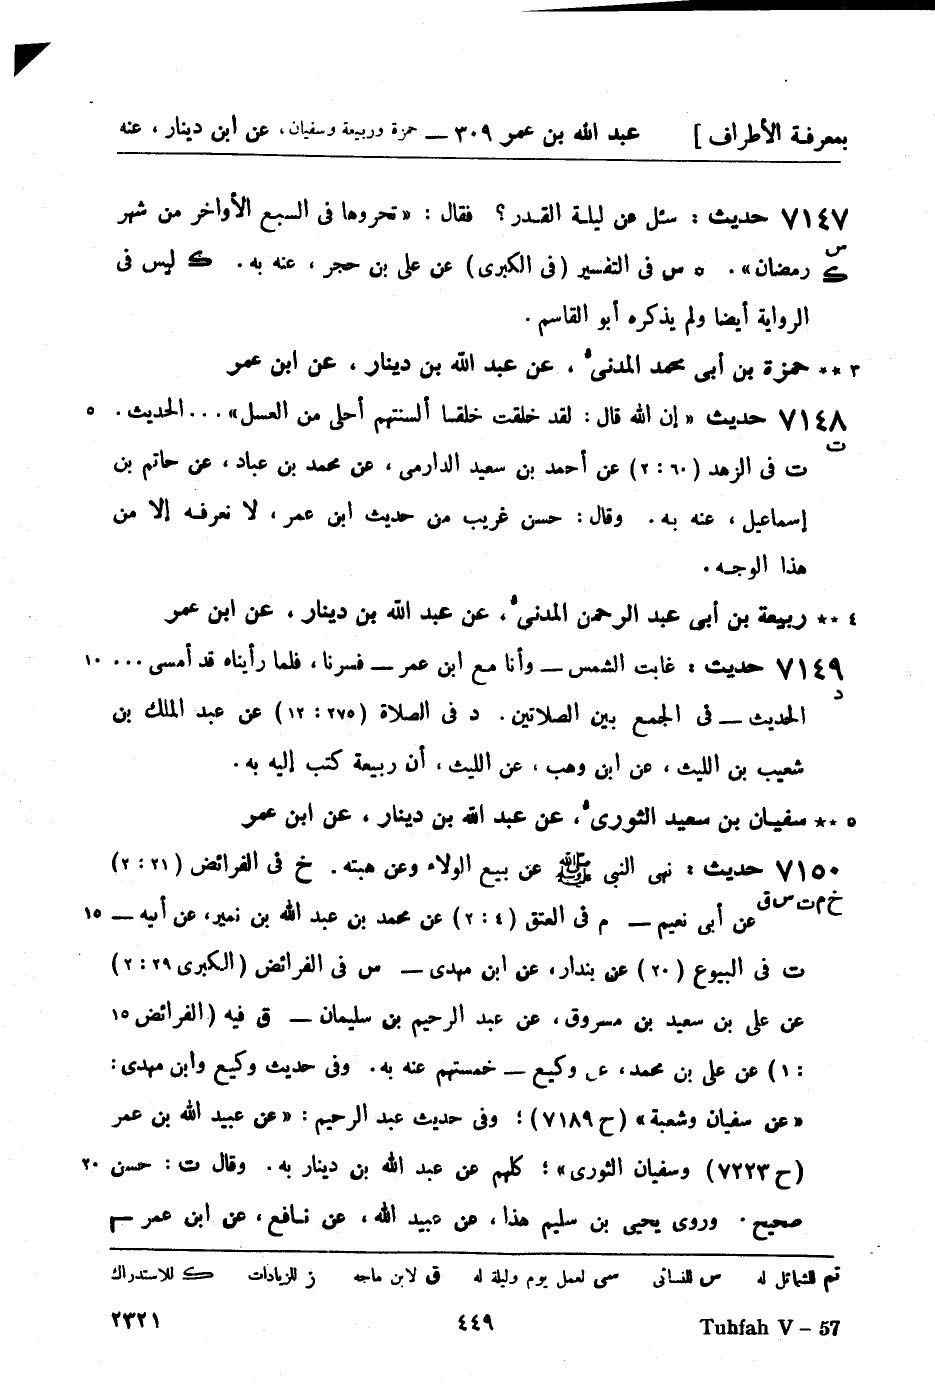 بمعرفة الأطراف ] عبد الله بن عمر ٣٠٩ — حمزة وربيعة وسفيان، عن ابن دينار ، عنه
٧١٤٧ حديث : سئل عن ليلة القدر ؟ فقال : «تحروها فى السبع الأواخر من شهر
س
ك رمضان» . ٥ س فى التفسير (فى الكبرى) عن على بن حجر ، عنه به . ك ليس فى
الرواية أيضا ولم يذكره أبو القاسم .
٣ ** حمزة بن أبى محمد المدنى، عن عبد الله بن دينار ، عن ابن عمر
٧١٤٨ حديث «إن الله قال : لقد خلقت خلقا ألسنتهم أحلى من العسل» ... الحديث . ٥
ت
ت فى الزهد (٦٠ : ٢) عن أحمد بن سعيد الدارمى ، عن محمد بن عباد ، عن حاتم بن
إسماعيل ، عنه به . وقال : حسن غريب من حديث ابن عمر ، لا نعرفه إلا من
هذا الوجه .
٤ ** ربيعة بن أبى عبد الرحمن المدنى، عن عبد الله بن دينار ، عن ابن عمر
٧١٤٩ حديث : غابت الشمس — وأنا مع ابن عمر — فسرنا ، فلما رأيناه قد أمسى ... ١٠
د
الحديث — فى الجمع بين الصلاتين . د فى الصلاة (٢٧٥ : ١٢) عن عبد الملك بن
شعيب بن الليث ، عن ابن وهب ، عن الليث ، أن ربيعة كتب إليه به .
٥ ** سفيان بن سعيد الثورى، عن عبد الله بن دينار ، عن ابن عمر
٧١٥٠ حديث : نهى النبى ﷺ عن بيع الولاء وعن هبته . خ فى الفرائض (٢١ : ٢)
خ م ت س ق عن أبى نعيم — م فى العتق (٤ : ٢) عن محمد بن عبد الله بن نمير، عن أبيه — ١٥
ت فى البيوع (٢٠) عن بندار، عن ابن مهدى — س فى الفرائض (الكبرى ٢٩ : ٢)
عن على بن سعيد بن مسروق، عن عبد الرحيم بن سليمان — ق فيه (الفرائض ١٥
: ١) عن على بن محمد، عن وكيع — خمستهم عنه به . وفى حديث وكيع وابن مهدى :
«عن سفيان وشعبة» (ح ٧١٨٩) ؛ وفى حديث عبد الرحيم : «عن عبيد الله بن عمر
(ح ٧٢٢٣) وسفيان الثورى» ؛ كلهم عن عبد الله بن دينار به . وقال ت : حسن ٢٠
صحيح . وروى يحيى بن سليم هذا ، عن عبيد الله ، عن نافع ، عن ابن عمر —
تم للشمائل له س للنسائى سى لعمل يوم وليلة له ق لابن ماجه ز للزيادات ك للاستدراك
Tuhfah V – 57 ٤٤٩ ٢٣٢١